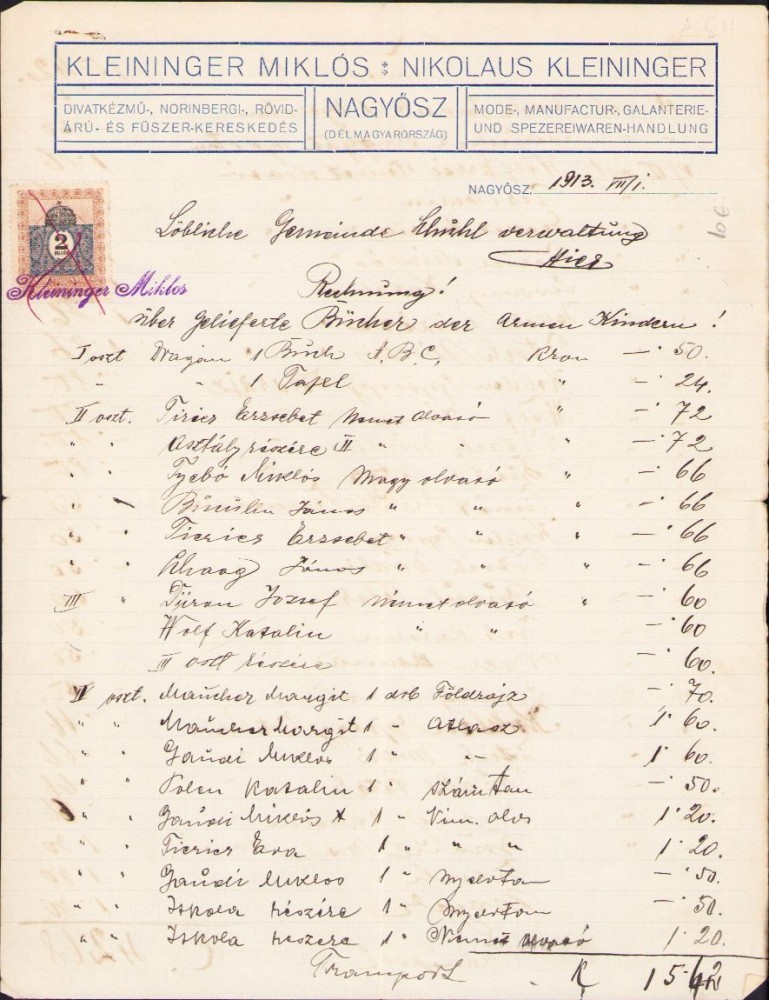 KLEININGER MIKLÓS : NIKOLAUS KLEININGER
DIVATKÉZMŰ-, NORINBERGI-, RÖVID-
ÁRÚ- ÉS FŰSZER-KERESKEDÉS
NAGYŐSZ
(DÉLMAGYARORSZÁG)
MODE-, MANUFACTUR-, GALANTERIE-
UND SPEZEREIWAREN-HANDLUNG
NAGYŐSZ, 1913. VIII/1.
2
Kleininger Miklós
Löbliche Gemeinde Schuhl verwaltung
Hier
Rechnung!
über Gelieferte Bücher der Armen Kindern!
I oszt Dragan 1 Buch A.B.C. Kron — 50.
" " 1 Tafel " — 24.
II oszt. Ticsics Erzsebet Nemet olvasó " — 72
" " Osztály részére II " " " — 72
" " Miklós Magy olvasó " — 66
" János " " " — 66
" " Ticsics Erzsebet " " " — 66
" " János " " " — 66
III " József Német olvasó " — 60
Wolf Katalin " " — 60
III oszt részére — 60.
oszt. Maucher Margit 1 drb Földrajz — 70.
" " Maucher Margit 1 " Atlasz 1 60.
" " Gaudi Miklos 1 " — 1 60.
" " Katalin 1 " Számtan — 50.
" " Gaudi Miklós x 1 " olvs 1 20.
" " Ticsics Eva 1 " " " 1 20.
" " Gaudi Miklos 1 " Nyelvtan — 50.
" " Iskola részére 1 " Nyelvtan — 50.
" " Iskola részere 1 " Német olvasó 1 20.
Transport K 15 42